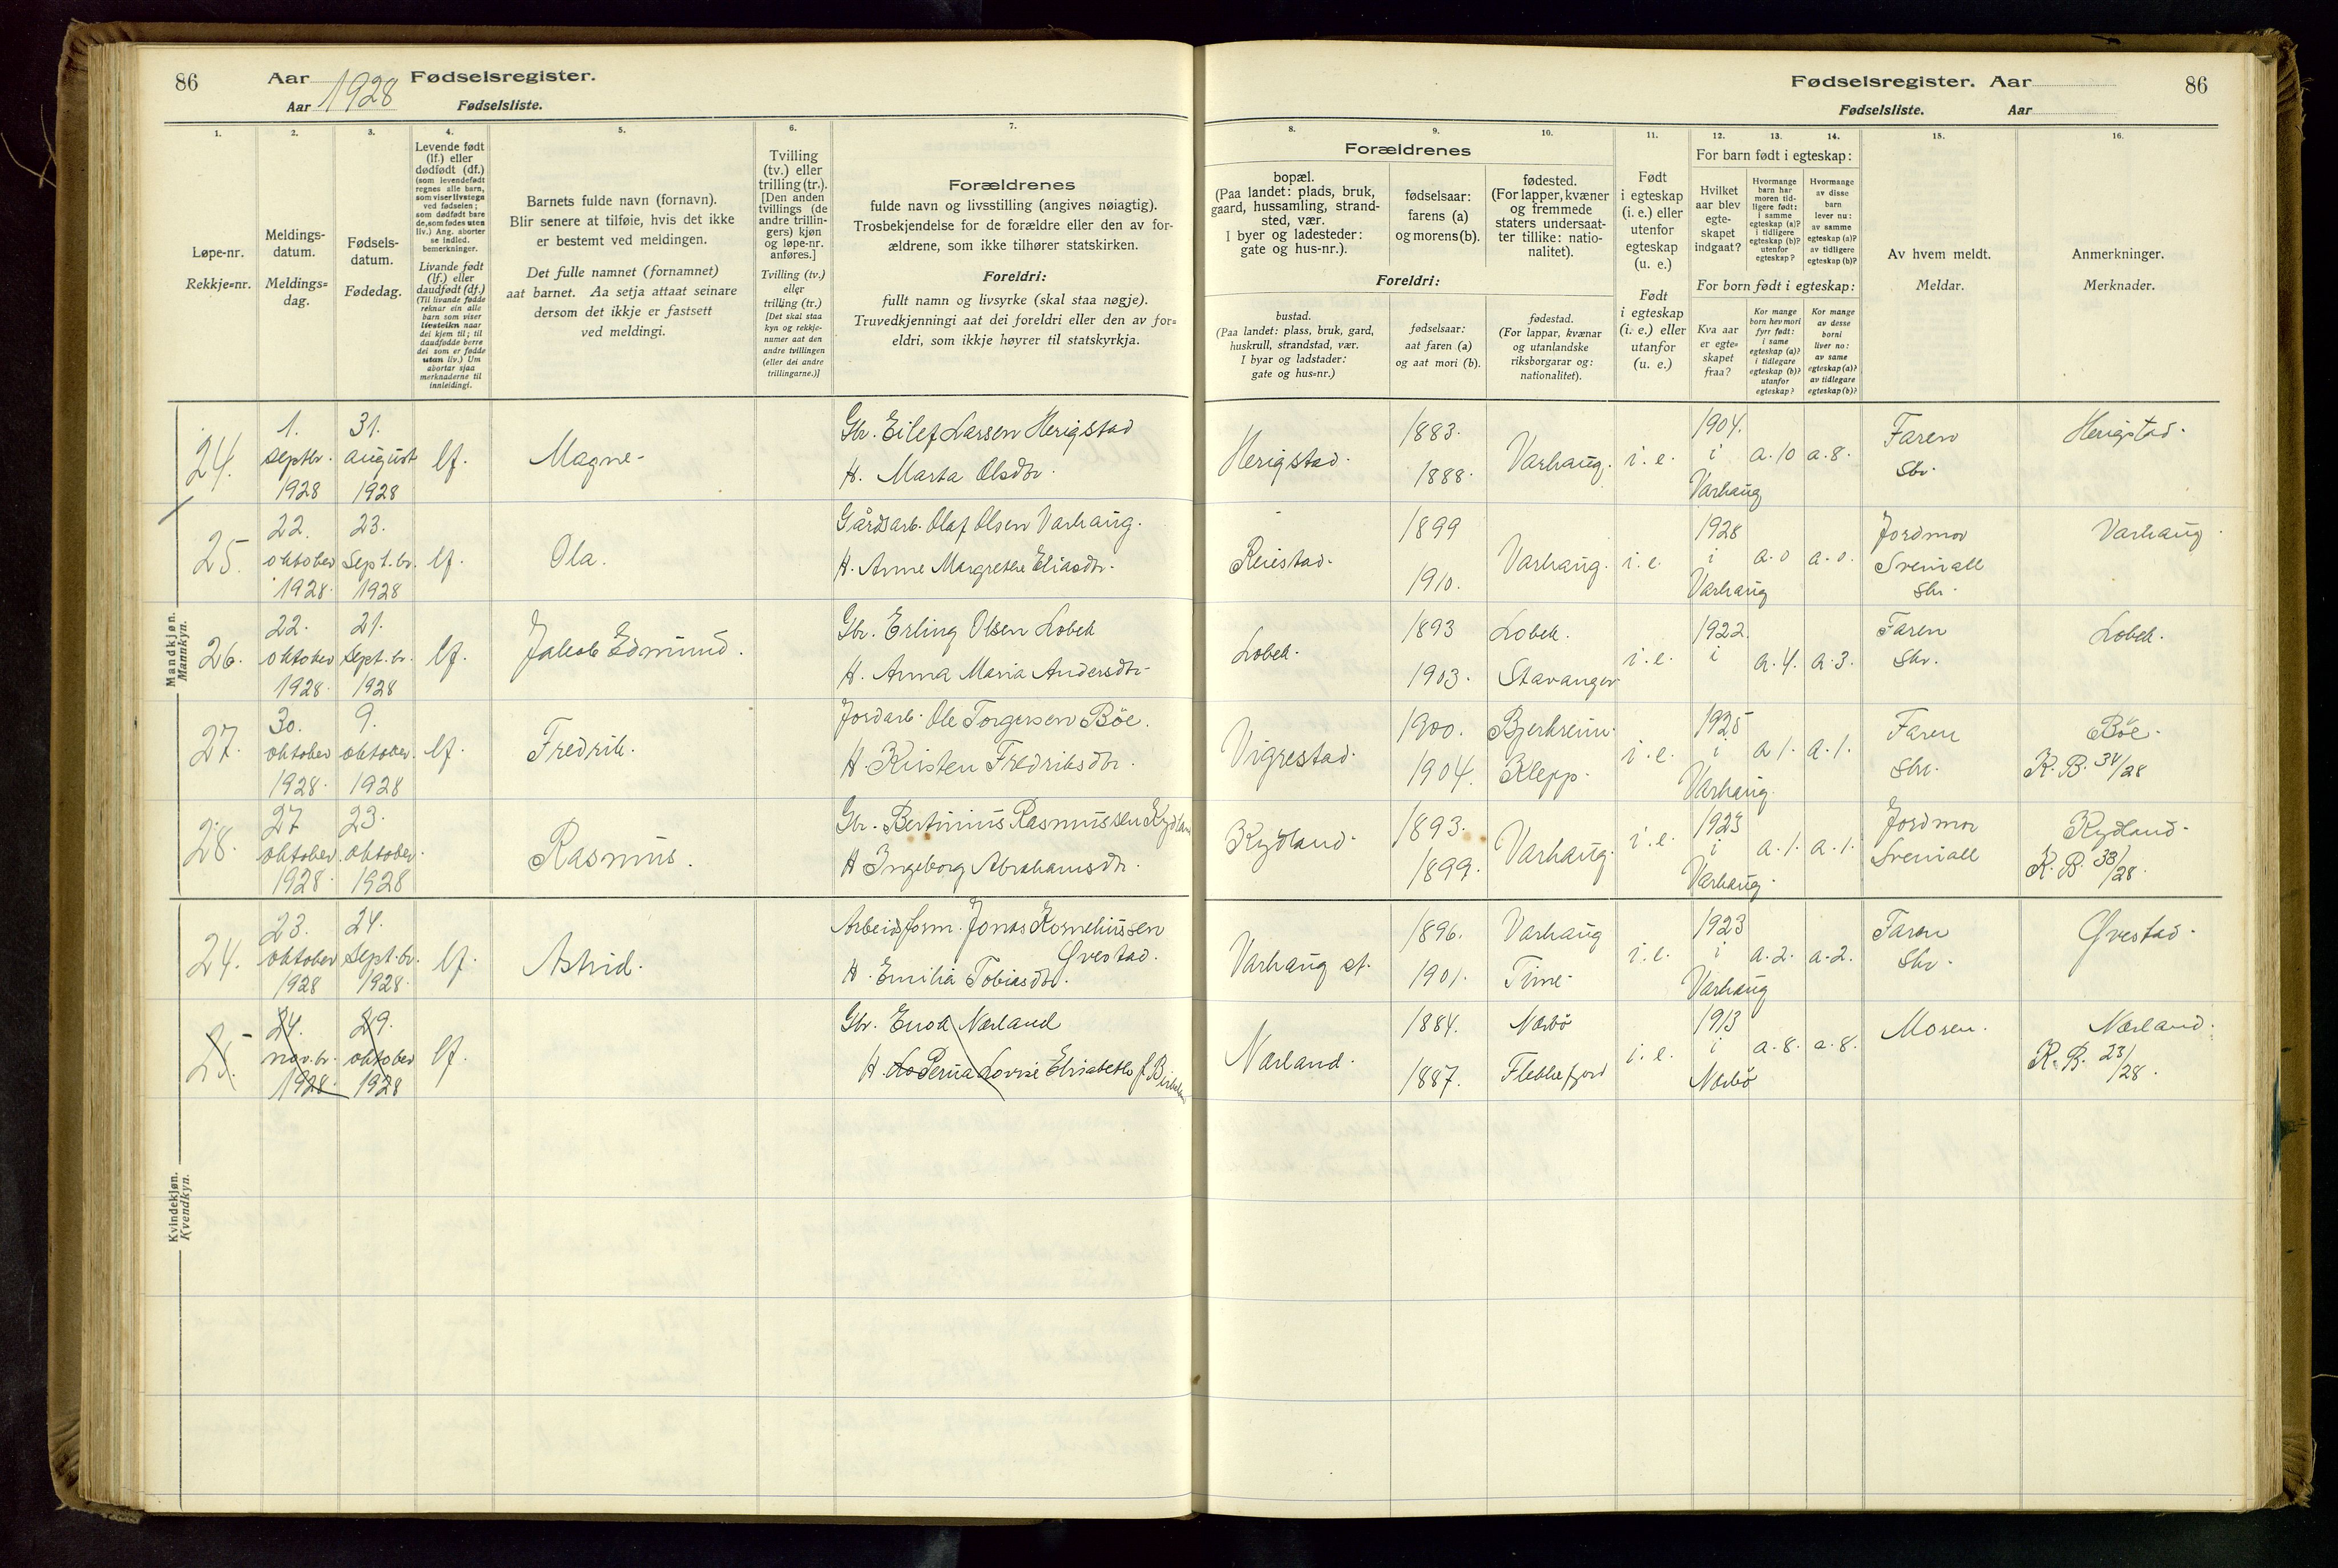 86
Aar 1928 Fødselsregister.
Aar Fødselsliste.
1.
Løpe-nr.
Rekkje=nr.
2.
Meldings-
datum.
Meldings=
dag.
3.
Fødsels-
datum.
Fødedag.
4.
Levende født
(lf.) eller
dødfødt (df.)
(som levendefødt
regnes alle barn,
som viser livstegn
ved fødselen;
som dødfødt bare
de, som fødes uten
liv.) Ang. aborter
se indled.
bemerkninger.
Livande født
(lf.) eller
daudfødt (df.)
(Til livande fødde
reknar ein alle
barn som viser
livsteikn naar
dei kjem til; til
daudfødde berre
dei som er fødde
utan liv.) Um
abortar sjaa
merknaderne til
innleidingi.
5.
Barnets fulde navn (fornavn).
Blir senere at tilføie, hvis det ikke
er bestemt ved meldingen.
Det fulle namnet (fornamnet)
aat barnet. Aa setja attaat seinare
dersom det ikkje er fastsett
ved meldingi.
6.
Tvilling
(tv.) eller
trilling (tr.).
[Den anden
tvillings (de
andre trillin-
gers) kjøn
og løpe-nr.
anføres.]
Tvilling (tv.)
eller
trilling (tr.)
[Det skal staa
kyn og rekkje-
numer aat den
andre tvillingen
(eller dei andre
trillingarne.)]
7.
Forældrenes
fulde navn og livsstilling (angives nøiagtig).
Trosbekjendelse for de forældre eller den av for-
ældrene, som ikke tilhører statskirken.
Foreldri:
fullt namn og livsyrke (skal staa nøgje).
Truvedkjenningi aat dei foreldri eller den av for=
eldri, som ikkje høyrer til statskyrkja.
Mandkjøn.
Mannkyn.
24.
1.
septbr.
1928
31.
august
1928
lf.
Magne.
Gbr. Eilef Larsen Herigstad
H. Marta Olsdtr.
25.
22.
oktober
1928.
23.
Sept.br.
1928
lf.
Ola.
Gårdsarb. Olaf Olsen Varhaug.
H. Anne Margrethe Eliasdtr.
26.
22.
oktober
1928.
21.
Sept.br.
1928
lf.
Jakob Edmund.
Gbr. Erling Olsen Lobek
H. Anna Maria Andersdtr.
27.
30.
oktober
1928.
9.
oktober.
1928
lf.
Fredrik.
Jordarb. Ole Torgersen Böe.
H. Kirsten Fredriksdtr.
28.
27
oktober.
1928.
23.
oktober.
1928
Rasmus.
Gbr. Bertinius Rasmussen Kydland
H Ingeborg Abrahamsdtr.
Kvindekjøn.
Kvendkyn.
24.
23.
oktober
1928
24.
Sept.br.
1928.
lf.
Astrid.
Arbeidsform. Jonas Korneliussen
Øvestad.
H. Emilia Tobiasdtr.
25.
24.
nov.br.
1928.
29.
oktober
1928
lf.
Gbr. Enok Nærland
H. Lovise Elisabeth f.
Fødselsregister. Aar
86
Fødselsliste. Aar
8.
9.
10.
Forældrenes
bopæl.
(Paa landet: plads, bruk,
gaard, hussamling, strand-
sted, vær.
I byer og ladesteder:
gate og hus-nr.).
fødselsaar:
farens (a)
og morens (b).
fødested.
(For lapper, kvæner
og fremmede
staters undersaat-
ter tillike: natio-
nalitet).
Foreldri:
bustad.
(Paa landet: plass, bruk, gard,
huskrull, strandstad, vær.
I byar og ladstader:
gate og hus=nr.)
fødselsaar:
aat faren (a)
og aat mori (b).
fødestad.
(For lappar, kvænar
og utanlandske
riksborgarar og:
nationalitet).
11.
Født
i egteskap
(i. e.) eller
utenfor
egteskap
(u. e.)
Født
i egteskap
(i. e.) eller
utanfor
(u. e.)
12.
13.
14.
For barn født i egteskap:
Hvilket
aar blev
egte-
skapet
indgaat?
Hvormange
barn har
moren tid-
ligere født:
i samme
egteskap (a)?
i tidligere
egteskap (b)?
utenfor
egteskap?
Hvormange
av disse
barn
lever nu:
av samme
egteskap (a)?
av tidligere
egteskap (b)?
For born født i egteskap:
Kva aar
er egte=
skapet
fraa?
Kor mange
born hev mori
fyrr født:
i same
egteskap (a)?
i tidlegare
egteskap (b)?
utanfor
egteskap?
Kor mange
av desse
borni
liver no:
av same
egteskap (a)?
av tidlegare
egteskap (b)?
15.
Av hvem meldt.
Meldar.
16.
Anmerkninger.
Merknader.
Herigstad.
1883.
1888.
Varhaug.
i. e.
1904.
i
Varhaug
a. 10
a. 8.
Faren
Skr.
Herigstad.
Reiestad.
1899
1910.
Varhaug.
i. e.
1928
i
Varhaug
a. 0
a. 0.
Jordmor
Sveniall
Skr.
Varhaug
Lobek.
1893
1903.
Lobek.
Stavanger
i. e.
1922.
i
a. 4.
a. 3.
Faren
Skr.
Lobek.
Vigrestad.
1900.
1904.
Bjerkreim.
Klepp.
i. e.
1925
i
Varhaug.
a 1.
a. 1.
Faren
Skr.
Böe.
K. B. 34/28
Kydland.
1893.
1899.
Varhaug.
i. e.
1923
i
Varhaug.
a. 1.
a. 1.
Jordmor
Sveniall
Kydland.
K. B. 33/28.
Varhaug st.
1896.
1901.
Varhaug
Time.
i. e.
1923
i
Varhaug
a. 2.
a. 2.
Faren
Skr.
Øvestad.
Nærland.
1884.
1887.
Nærbö
Flekkefjord
i. e.
1913
i
Nærbö
a. 8.
a. 8.
Moren.
Nærland.
K. B. 23/28.